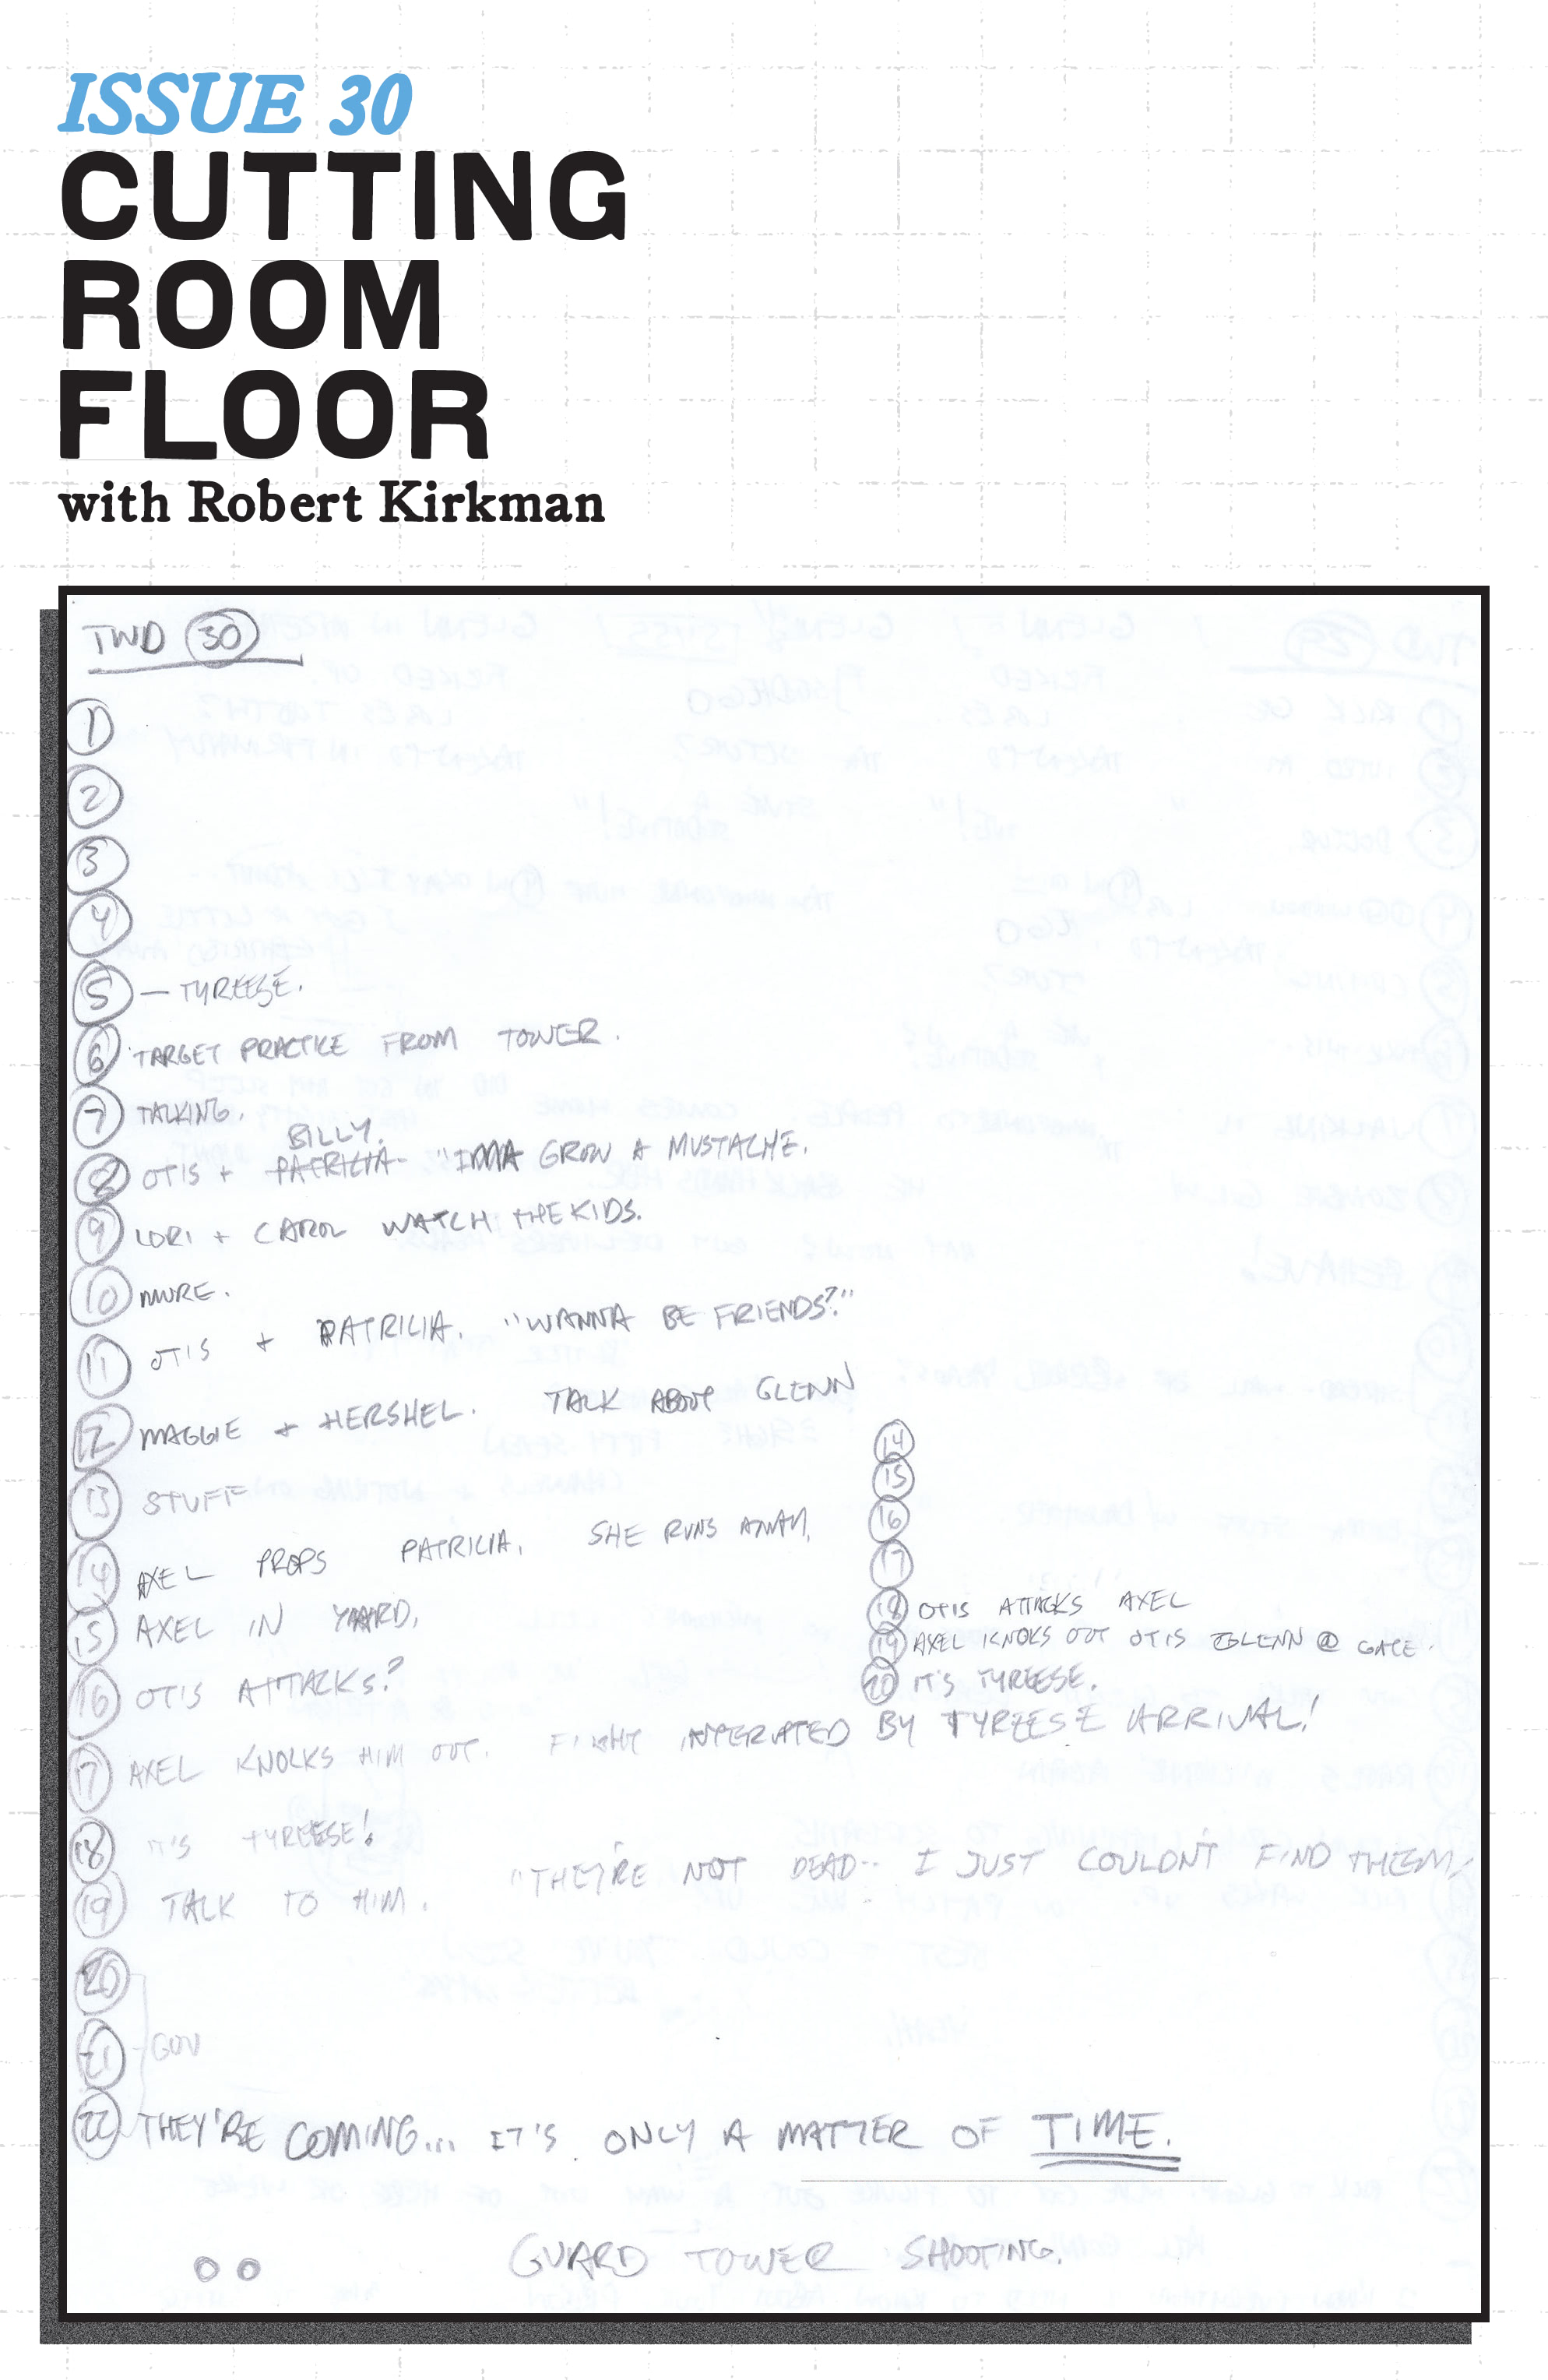 ISSUE 30
CUTTING
ROOM
FLOOR
with Robert Kirkman
TWD 30
1
2
3
4
5 — TYREESE.
6 TARGET PRACTICE FROM TOWER.
7 TALKING.
BILLY.
8 OTIS + PATRICIA "IMMA GROW A MUSTACHE.
9 LORI + CAROL WATCH THE KIDS.
10 MORE.
11 OTIS + PATRICIA. "WANNA BE FRIENDS?"
12 MAGGIE + HERSHEL. TALK ABOUT GLENN
13 STUFF
14 AXEL PROPS PATRICIA. SHE RUNS AWAY.
15 AXEL IN YAARD.
16 OTIS ATTACKS?
17 AXEL KNOCKS HIM OUT. FIGHT INTERATED BY TYREESE ARRIVAL!
18 IT'S TYREESE!
19 TALK TO HIM. "THEY'RE NOT DEAD.. I JUST COULDN'T FIND THEM.
20
21 GOV
22 THEY'RE COMING... IT'S ONLY A MATTER OF TIME.
14
15
16
17
18 OTIS ATTACKS AXEL
19 AXEL KNOCKS OUT OTIS GLENN @ GATE.
20 IT'S TYREESE.
GUARD TOWER SHOOTING.